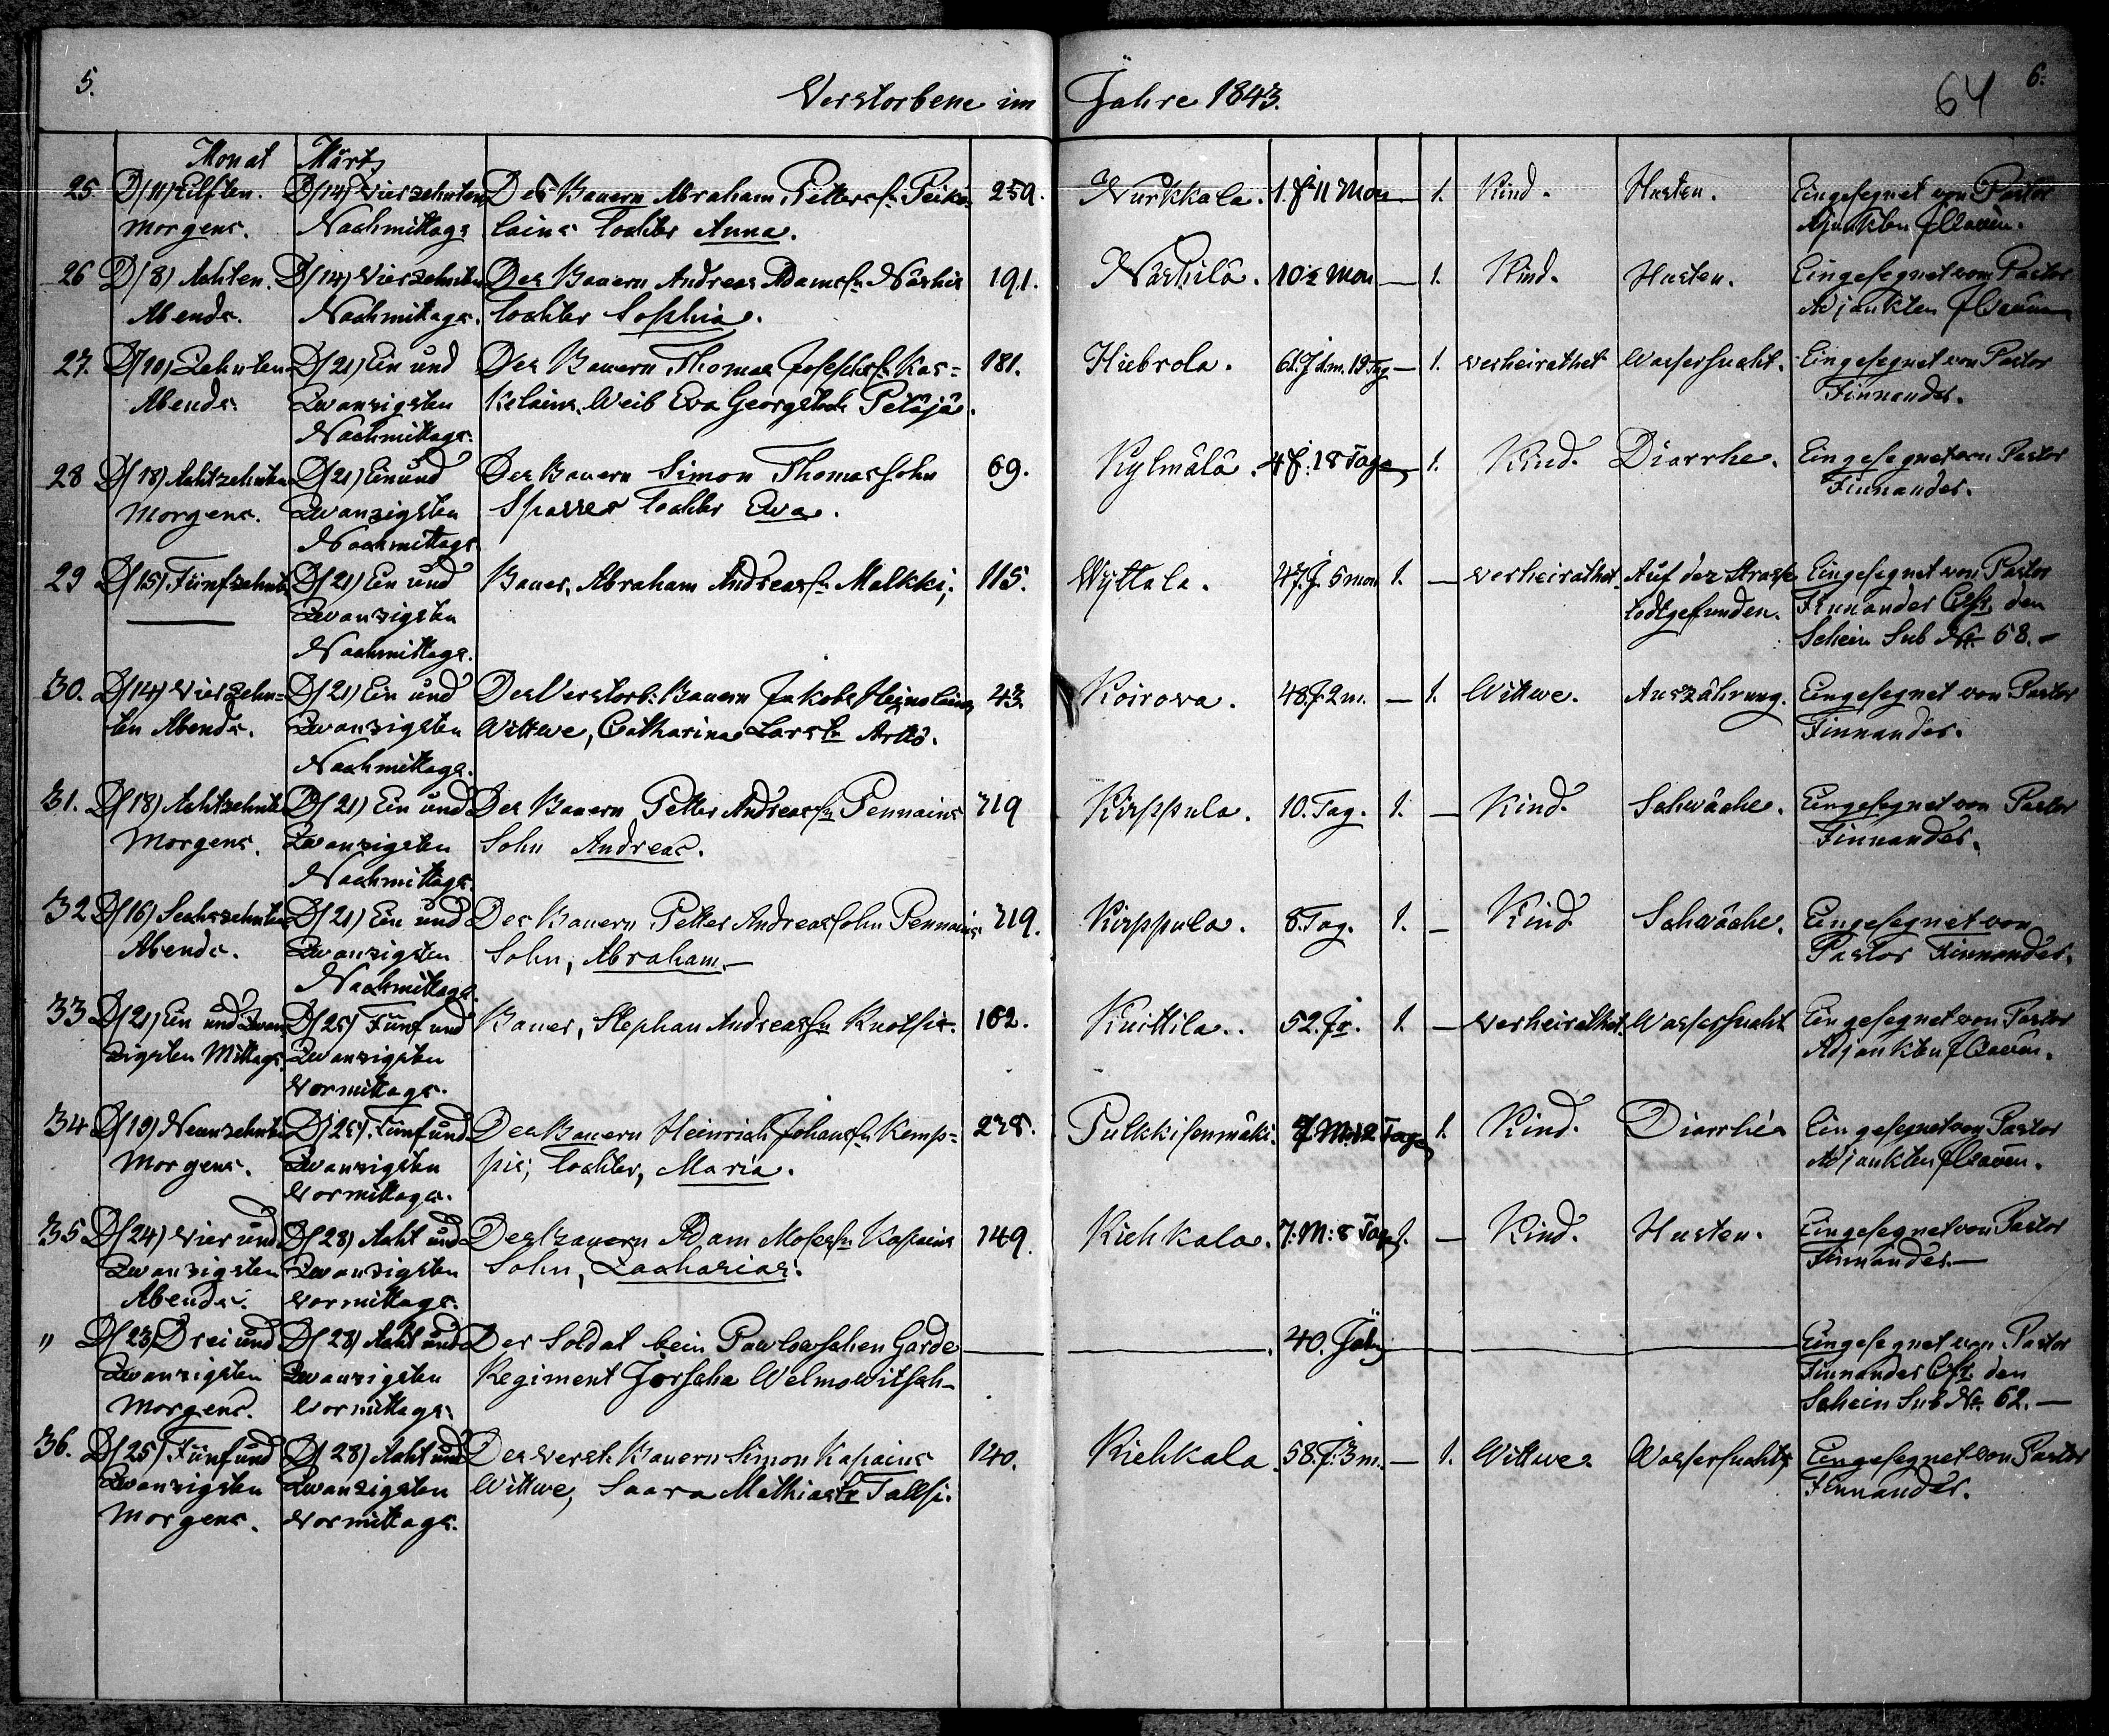 5.
Verstorbene im Jahre 1843.
64
6.
Monat Märtz
25. D/11/ Eilften. D/14/ Vierzehnten Des Bauern Abraham Petterss: Peiko= 259. Nurkkala. 1.J 11 Mon — 1. Kind. Husten. Eingesegnet von Pastor
Morgens. Nachmittags lains Tochter Anna. Adjunkten
26 D/8/ Achten. D/14/ Vierzehnten Des Bauern Andreas Adams Närhis 191. Närhilä. 10½ Mon — 1. Kind. Husten. Eingesegnet vom Pastor
Abends. Nachmittags. Tochter Sophia. Adjunkten
27. D/10/ Zehnten D/21/ Ein und Des Bauern Thomas Josephs Kos= 181. Hiebrola. 61.J 1.m. 19 Tag — 1. verheirathet Wassersucht. Eingesegnet von Pastor
Abends. Zwanzigsten kelains Weib Eva Georgstoch Petäjä. Finnander.
Nachmittags.
28 D/18/ Achtzehnten D/21/ Ein und Des Bauern Simon Thomassohn 69. Kylmälä. 4J: 18 Tage 1. Kind. Diarrhe. Eingesegnet von Pastor
Morgens. Zwanzigsten Tochter Eva. Finnander.
Nachmittags
29 D/15/ Fünfzehnte D/21/ Ein und Bauer, Abraham Andreass Malkki, 115. Wyttala. 47.J. 5 mon 1. — verheirathet. Auf der Strasse Eingesegnet von Pastor
— Zwanzigsten todtgefunden. Finnander Cfr. den
Nachmittags. Schein Sub No. 58. —
30. D/14/ Vierzehn= D/21/ Ein und Des Verstorb: Bauern Jakobs Heinolains 43. Koirova. 48.J 2 m. — 1. Wittwe. Auszährung. Eingesegnet von Pastor
ten Abends. Zwanzigsten Wittwe, Catharina Larst Arttö. Finnander.
Nachmittags.
31. D/18/ Achtzehnte D/21/ Ein und Des Bauern Petter Andreass Pennains 719 Kirppula. 10. Tag. 1. — Kind. Schwäche. Eingesegnet von Pastor
Morgens. Zwanzigsten Sohn Andreas. Finnander.
Nachmittags.
32 D/16/ Sechszehnten D/21/ Ein und Des Bauern Petter Andreassohn Pennains 719. Kirppula. 8. Tag. 1. — Kind Schwäche. Eingesegnet von
Abends. Zwanzigsten Sohn, Abraham. — Pastor Finnander.
Nachmittags
33 D/21/ Ein und Zwan D/25/ Fünf und Bauer, Stephan Andreass 162. Knittila. 52. Jr. 1. — verheirathet. Wassersucht Eingesegnet von Pastor
zigsten Mittags. Zwanzigsten Adjunkten
Vormittags.
34 D/19/ Neunzehnten D/25/ Fünf und Des Bauern Heinrich Johanss Kemp= 278. Pulkkisenmäki. 7.M. 12 Tage 1. Kind. Diarrhée Eingesegnet von Pastor
Morgens. Zwanzigsten pis, Tochter, Maria. Adjunkten
Vormittags.
35 D/24/ Vier und D/28/ Acht und Des Bauern Adam Moses Kapains 149. Kiehkala. 7: M: 8 Tag 1. — Kind. Husten. Eingesegnet von Pastor
Zwanzigsten Zwanzigsten Sohn, Zacharias. Finnander. —
Abends. Vormittags.
" D/23/ Drei und D/28/ Acht und Der Soldat bein Pawlowschen Garde — — 40. Jahr — — — Eingesegnet von Pastor
Zwanzigsten Zwanzigsten Regiment Jorscha Welmowitsch Finnander Cfr. den
Morgens. Vormittags. Schein Sub No. 62. —
36. D/25/ Fünf und D/28/ Acht und Des verst. Bauern Simon Kapains 140. Kiehkala. 58.J: 3 m. — 1. Wittwe. Wassersucht. Eingesegnet von Pastor
Zwanzigsten Zwanzigsten Wittwe, Saara Mathiast Tallsi. Finnander.
Morgens. Vormittags.